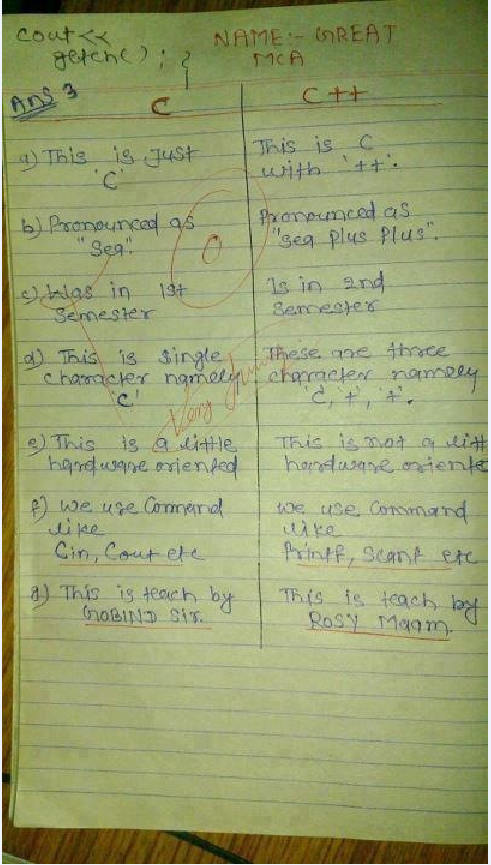 cout<<
getch(); }
NAME:- GREAT
MCA
Ans 3
C
C++
a) This is Just
'C'
This is C
with '++'.
b) Pronounced as
"Sea".
Pronounced as
"Sea Plus Plus".
0
c) Was in 1st
Semester
Is in 2nd
Semester
d) This is single
character namely
'C'
These are three
character namely
'C, +', '+'.
Very
e) This is a little
hardware oriented
This is not a litt
hardware oriente
f) We use Command
like
Cin, Cout etc
We use Command
like
Printf, Scanf etc
g) This is teach by
GOBIND Sir.
This is teach by
ROSY Maam.